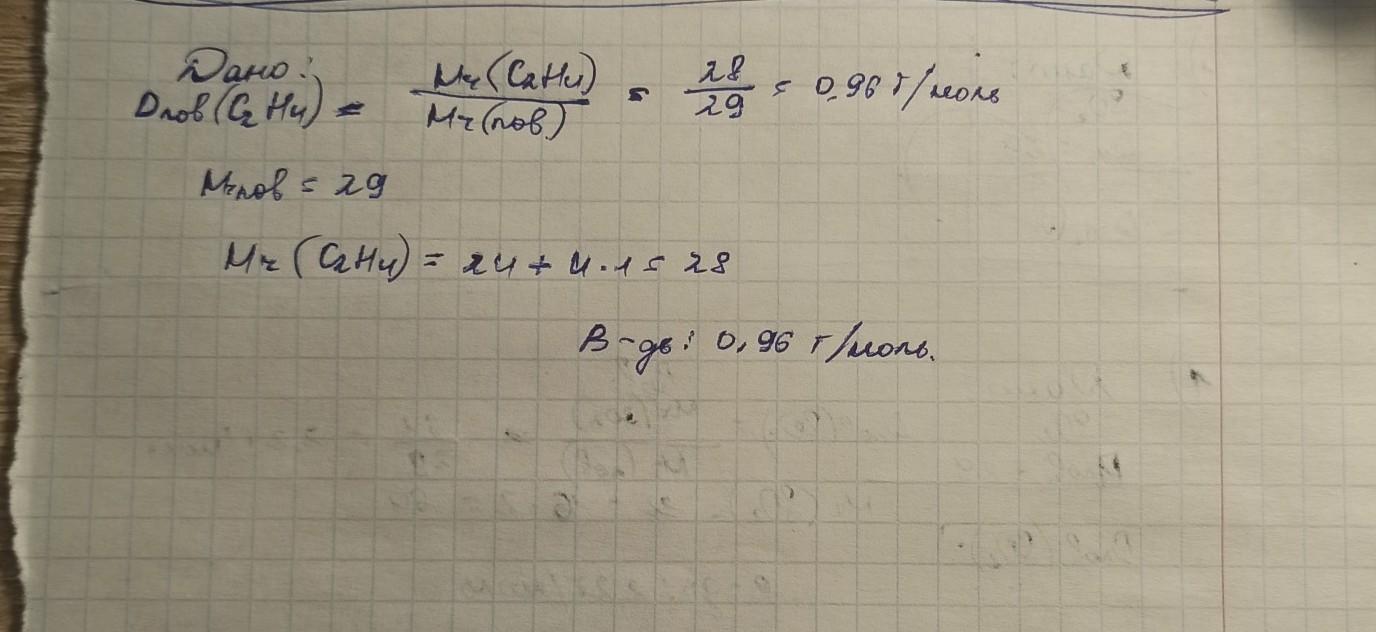 Дано:
Dпов(C₂H₄) = Mr(C₂H₄) / Mr(пов) = 28 / 29 = 0,96 г/моль
Mrпов = 29
Mr(C₂H₄) = 24 + 4·1 = 28
В-дь: 0,96 г/моль.